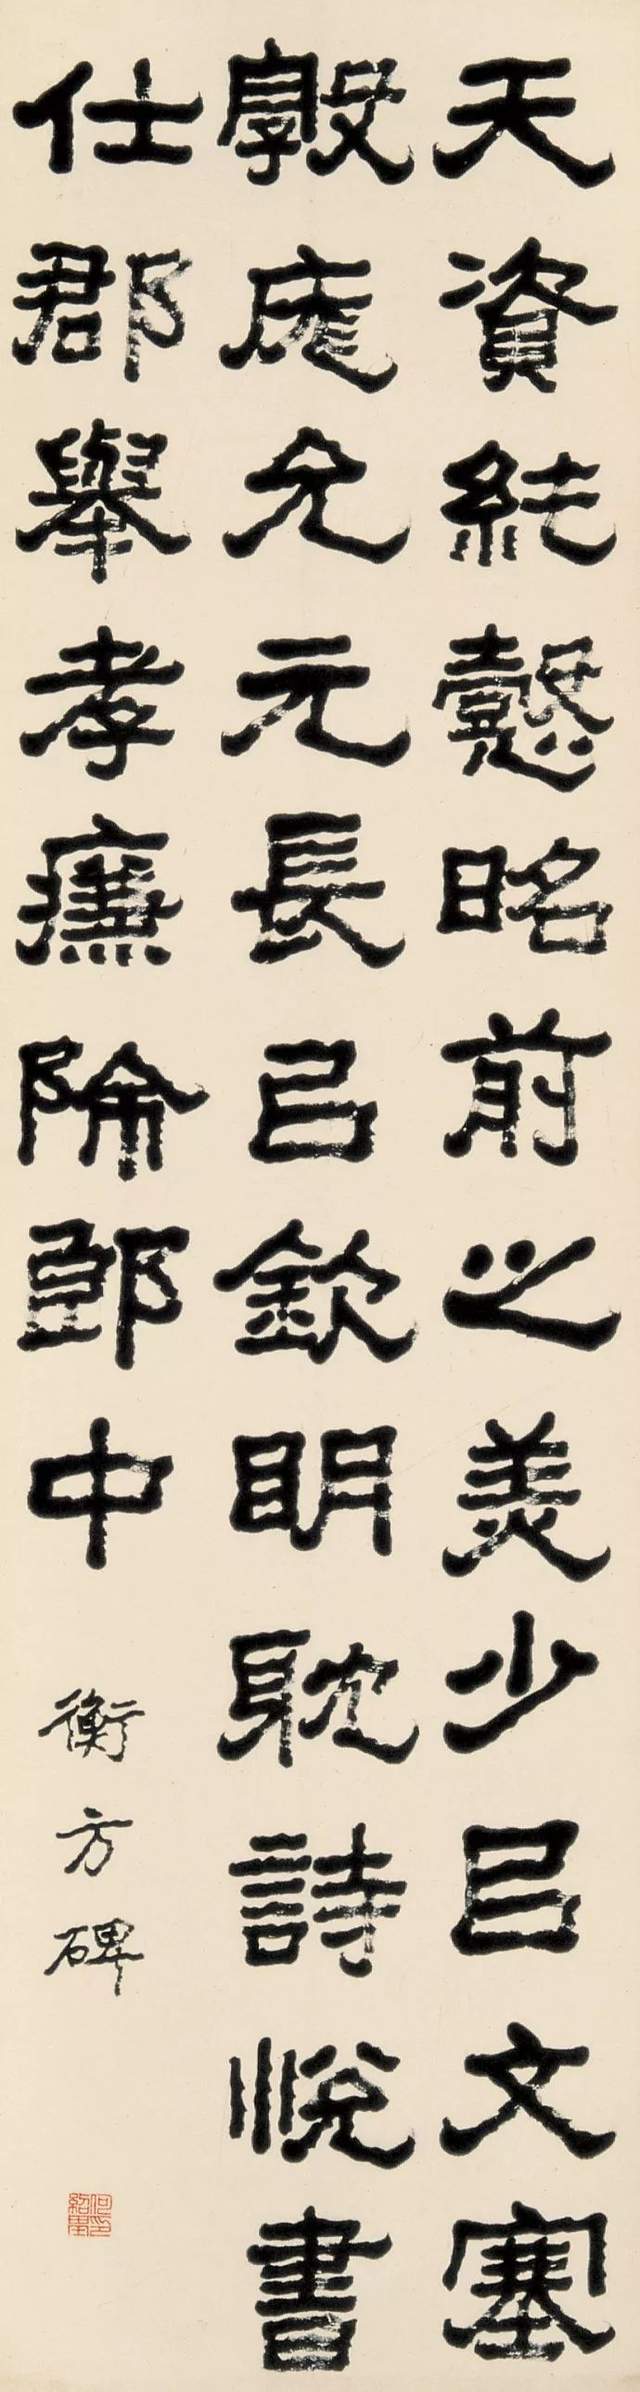 天資純懿昭前之美少㠯文塞
敦庬允元長㠯欽明耽詩悅書
仕郡舉孝廉除郎中
衡方碑
何紹基印